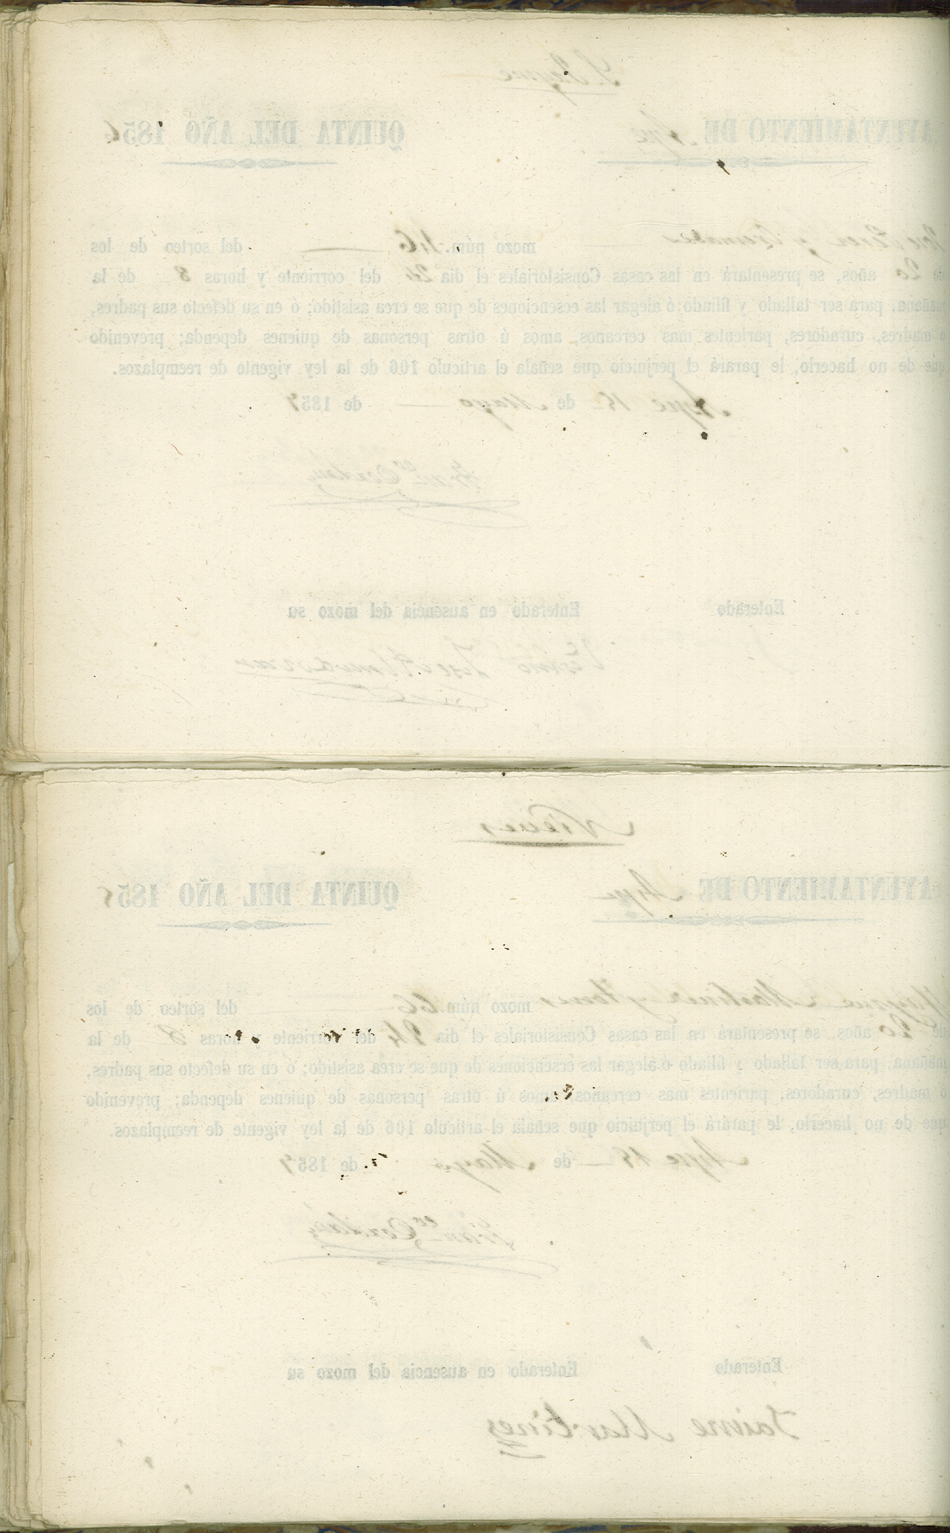 AYUNTAMIENTO DE Aspe QUINTA DEL AÑO 185
mozo núm. 46 del sorteo de los
de 20 años, se presentará en las casas Consistoriales el dia 24 del corriente y horas 8 de la
mañana, para ser tallado y filiado; ó alegar las esenciones de que se crea asistido; ó en su defecto sus padres,
ó madres, curadores, parientes mas cercanos, amos ú otras personas de quienes dependa; prevenido
que de no hacerlo, le parará el perjuicio que señala el artículo 106 de la ley vigente de reemplazos.
Aspe 18 de Mayo de 1857
Enterado Enterado en ausencia del mozo su
Nieves
AYUNTAMIENTO DE Aspe QUINTA DEL AÑO 185
Martinez y mozo núm. 66 del sorteo de los
de 20 años, se presentará en las casas Consistoriales el dia 24 del corriente y horas 8 de la
mañana, para ser tallado y filiado ó alegar las esenciones de que se crea asistido; ó en su defecto sus padres,
ó madres, curadores, parientes mas cercanos, amos ú otras personas de quienes dependa; prevenido
que de no hacerlo, le parará el perjuicio que señala el artículo 106 de la ley vigente de reemplazos.
Aspe 18 de Mayo de 1857
Enterado Enterado en ausencia del mozo su
Jaime Martinez